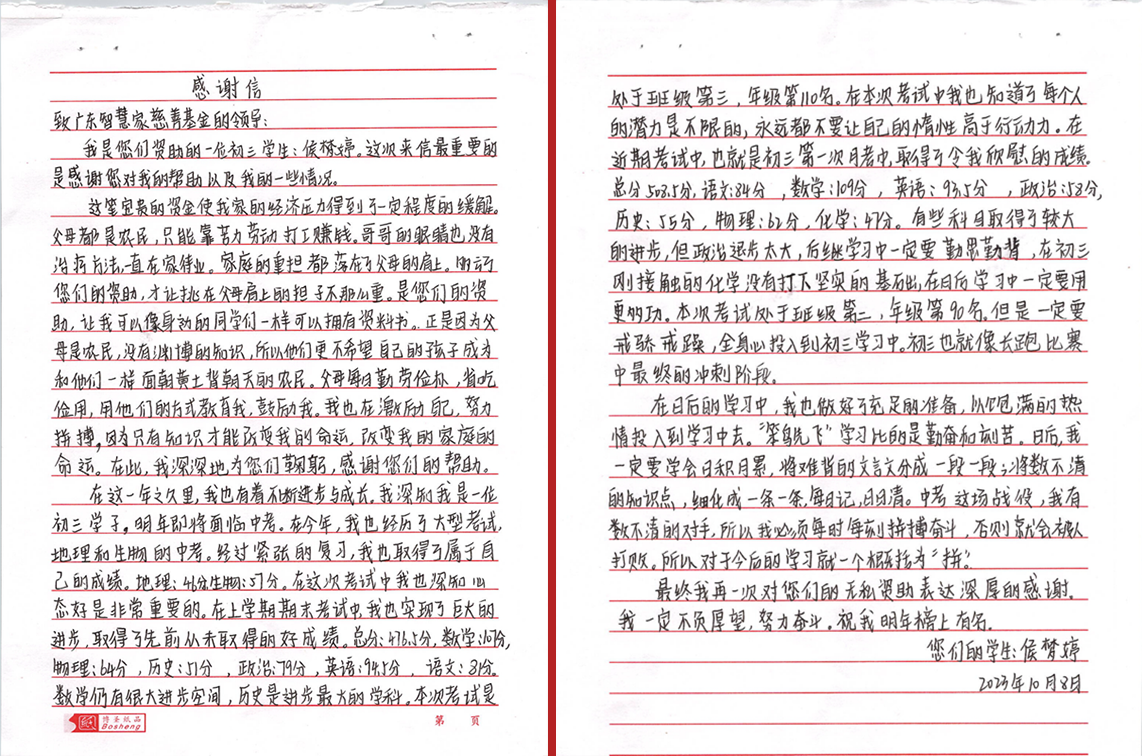 感谢信
致广东智慧家慈善基金的领导：
我是您们资助的一位初三学生：侯梦婷。这次来信最重要的
是感谢您对我的帮助以及我的一些情况。
这笔宝贵的资金使我家的经济压力得到了一定程度的缓解。
父母都是农民，只能靠苦力劳动打工赚钱。哥哥的眼睛也没有
治疗方法，一直在家待业。家庭的重担都落在了父母的肩上。
您们的资助，才让挑在父母肩上的担子不那么重。是您们的资
助，让我可以像身边的同学们一样可以拥有资料书。正是因为父
母是农民，没有渊博的知识，所以他们更不希望自己的孩子成为
和他们一样面朝黄土背朝天的农民。父母每日勤劳俭朴，省吃
俭用，用他们的方式教育我，鼓励我。我也在激励自己，努力
拼搏，因为只有知识才能改变我的命运，改变我的家庭的
命运。在此，我深深地为您们鞠躬，感谢您们的帮助。
在这一年之久里，我也有着不断进步与成长。我深知我是一位
初三学子。明年即将面临中考。在今年，我也经历了大型考试，
地理和生物的中考。经过紧张的复习，我也取得了属于自
己的成绩。地理：46分生物：57分。在这次考试中我也深知心
态好是非常重要的。在上学期期末考试中，我也实现了巨大的
进步，取得了先前从未取得的好成绩。总分：476.5分，数学：107分，
物理：64分，历史：51分，政治：79分，英语：94.5分，语文：81分。
数学仍有很大进步空间，历史是进步最大的学科。本次考试是
博圣纸品
Bosheng
第 页
处于班级第三，年级第110名。在本次考试中我也知道了每个人
的潜力是不限的，永远都不要让自己的惰性高于行动力。在
近期考试中，也就是初三第一次月考中，取得了令我欣慰的成绩。
总分508.5分，语文：84分，数学：109分，英语：93.5分，政治：58分，
历史：55分，物理：62分，化学：47分。有些科目取得了较大
的进步，但政治退步太大，后继学习中一定要勤思勤背，在初三
刚接触的化学没有打下坚实的基础，在日后学习中一定要用
更多功。本次考试处于班级第二，年级第90名。但是一定要
戒骄戒躁，全身心投入到初三学习中。初三也就像长跑比赛
中最终的冲刺阶段。
在日后的学习中，我也做好了充足的准备，以饱满的热
情投入到学习中去。“笨鸟先飞”学习比的是勤奋和刻苦。日后，我
一定要学会日积月累，将难背的文言文分成一段一段；将数不清
的知识点，细化成一条一条，每日记，日日清。中考这场战役，我有
数不清的对手，所以我必须每时每刻拼搏奋斗，否则就会被人
打败。所以对于今后的学习就一个概括为“拼”。
最终我再一次对您们的无私资助表达深厚的感谢。
我一定不负厚望，努力奋斗。祝我明年榜上有名。
您们的学生：侯梦婷
2023年10月8日